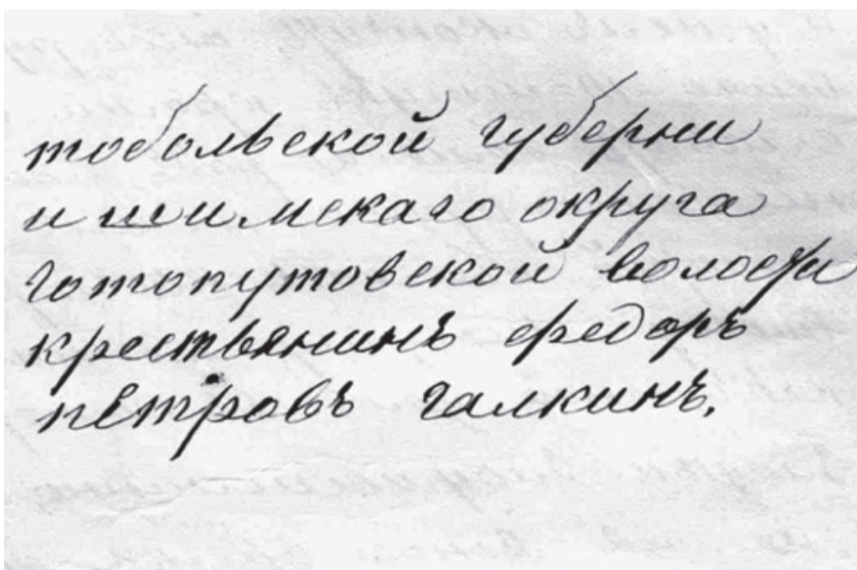 тобольской губерни
и шимскаго округа
готопутовской волости
крестьянинъ федоръ
петровъ галкинъ.